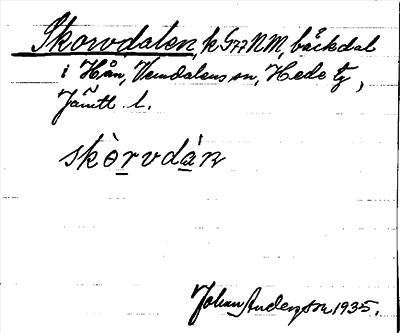 Skorvdalen, k G77NM, bäckdal
i Hån, Vemdalens sn, Hede tg,
Jämtl l.
skòrvdáń
Johan Anderzson 1935.